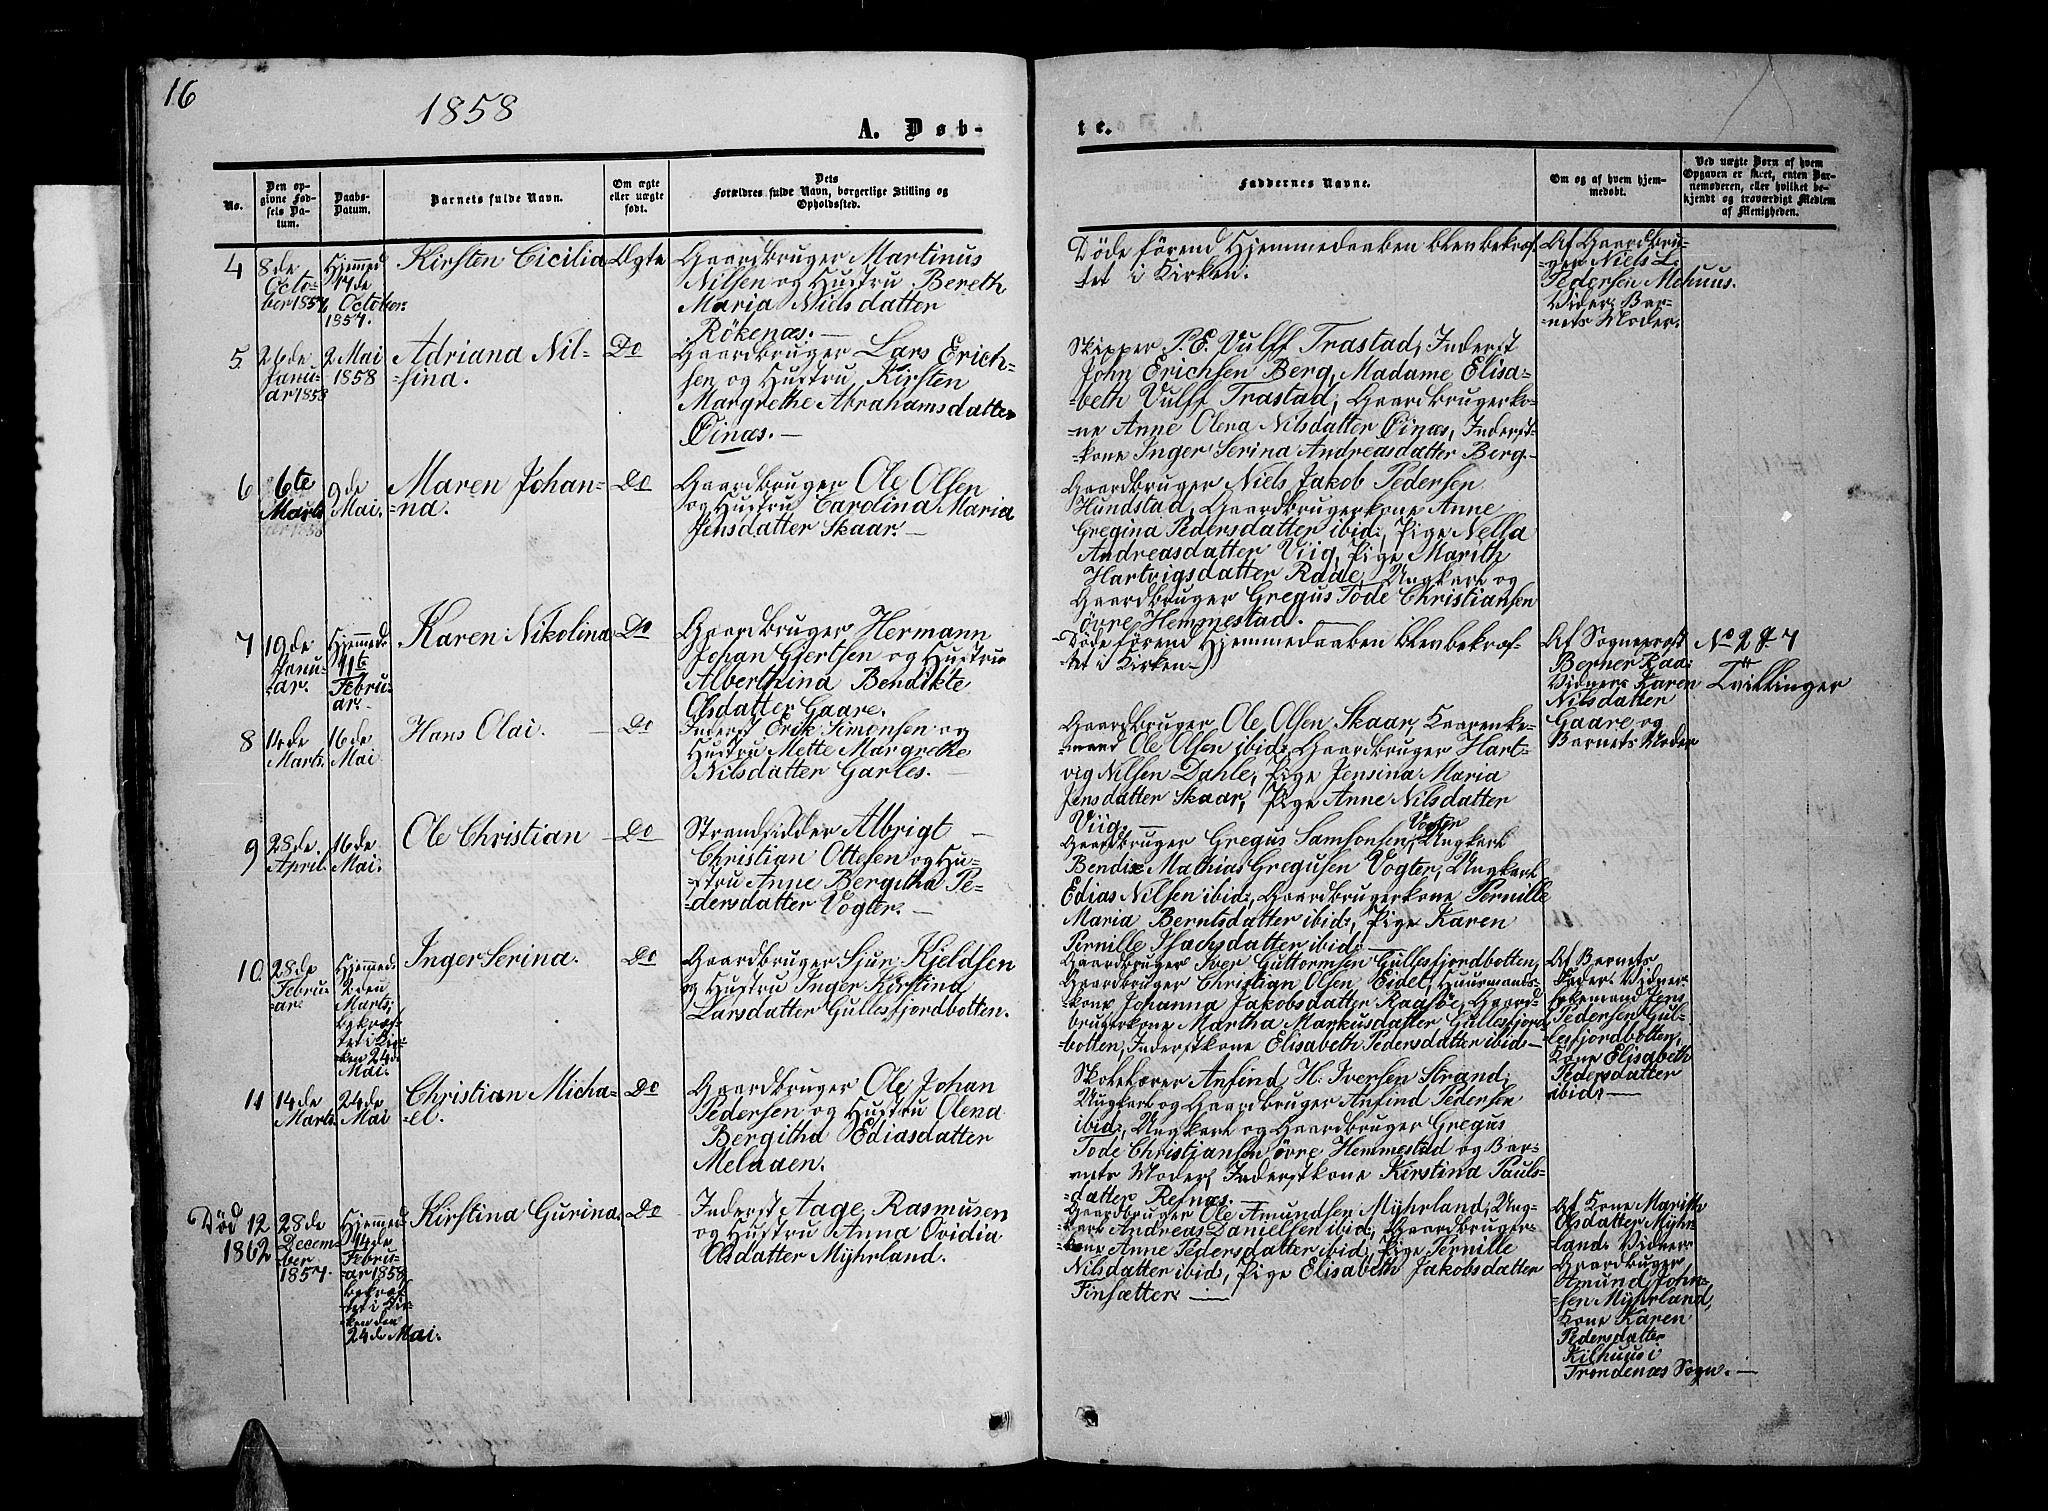 16
1858
A. Døb-
te.
No.
Den op-
givne Fød-
sels Da-
tum.
Daabs-
Datum.
Barnets fulde Navn.
Om ægte
eller uægte
født.
Dets
Forældres fulde Navn, borgerlige Stilling og
Opholdssted.
Faddernes Navne.
Om og af hvem hjem-
medøbt.
Ved uægte Børn af hvem
Opgaven er skeet, enten Bar-
nemoderen, eller hvilket be-
kjendt og troværdigt Medlem
af Menigheden.
4
8de
Octo-
ber 1857
Hjemmed.
17de
October
1857.
Kirsten Cicilia
Ægte
Gaardbruger Martinus
Nilsen og Hustru Bereth
Maria Nielsdatter
Rökenæs. —
Døde förend Hjemmedaaben blev bekræf-
tet i Kirken.
Af Gaardbru-
-ger Niels L.
Pedersen Mehuus.
Vider: Bar-
nets Moder.
5.
26de
Janu-
ar 1858
2 Mai
1858
Adriana Nil-
-sina.
Do
Gaardbruger Lars Erich-
sen og Hustru Kirsten
Margrethe Abrahamsdatter
Öinæs. —
Skipper P. E. Vulff Trastad, Inderst
John Erichsen Berg, Madame Elisa-
-beth Vulff Trastad, Gaardbrugerko-
-ne Anne Olena Nilsdatter Öinæs, Inderst-
-kone Inger Serina Andreasdatter Berg. —
6
6te
Marts
9de
Mai.
Maren Johan-
-na.
Do
Gaardbruger Ole Olsen
og Hustru Carolina Maria
Jensdatter Skaar. —
Gaardbruger Niels Jakob Pedersen
Hundstad, Gaardbrugerkone Anne
Gregina Pedersdatter ibid:, Pige Nella
Andreasdatter Viig, Pige Marith
Hartvigsdatter Rade, Ungkarl og
Gaardbruger Gregus Tode Christiansen
övre Hemmestad. —
7
19de
Janu-
-ar.
Hjemmed:
11te
Febru-
ar.
Karen Nikolina
Do
Gaardbruger Hermann
Johan Giertsen og Hustru
Alberthina Bendikte
Olsdatter Gaare.
Døde förend Hjemmedaaben blev bekræf-
tet i Kirken. —
Af Sogneprest
Berner Raa:
Vidner: Karen
Nilsdatter
Gaare og
Barnets Moder
No 2 & 7
Tvillinger
8
14de
Marts.
16de
Mai
Hans Olai. —
Do
Inderst Erik Simonsen og
Hustru Mette Margrethe
Nilsdatter Garles. —
Gaardbruger Ole Olsen Skaar, Kaarenke-
-mand Ole Olsen ibid:, Gaardbruger Hart-
vig Nilsen Dahle, Pige Jensina Maria
Jensdatter Skaar, Pige Anne Nilsdatter
Viig. —
9
28de
April.
16de
Mai.
Ole Christian
Do
Strandsidder Albrigt —
Christian Ottesen og Hu-
-stru Anne Bergitha Pe-
-dersdatter Vogter. —
Gaardbruger Gregus Samsonsen Vogter, Ungkarl
Bendix Mathias Gregusen Vogter, Ungkarl
Edias Nilsen ibid:, Gaardbrugerkone Pernille
Maria Berntsdatter ibid:, Pige Karen
Pernille Isachsdatter ibid:
10.
28de
Febru-
ar.
Hjemmed:
2den
Marts;
bekræf-
tet i Kir-
ken 24de
Mai.
Inger Serina.
Do
Gaardbruger Sjur Kjeldsen
og Hustru Inger Kirstina
Larsdatter Gullesfjordbotten.
Gaardbruger Iver Guttormsen Gullesfjordbotten,
Gaardbruger Christian Olsen Eidet, Huusmands-
kone Johanna Jakobsdatter Ragsöe, Gaard-
brugerkone Martha Markusdatter Gullesfjord-
botten, Inderstkone Elisabeth Pedersdatter ibid: —
Af Barnets
Fader. Vidner:
Pedersen Gul-
lesfjordbotten,
Kone Elisabeth
Pedersdatter
ibid: —
11
14de
Marts.
24de
Mai
Christian Micha-
-el.
Do
Gaardbruger Ole Johan
Pedersen og Hustru Olena
Bergitha Ediasdatter
Melaaen.
Skolelærer Anfind H. Iversen Strand;
Ungkarl og Gaardbruger Anfind Pedersen
ibid:, Ungkarl og Gaardbruger Gregus
Tode Christiansen övre Hemmestad og Bar-
nets Moder, Inderstkone Kirstina Pauls-
-datter Refnæs.
Död
1862
12
28de
Decem-
ber
1857.
Hjemmed:
14de
Febru-
ar 1858
bekræf-
tet i Kir-
ken den
24de Mai.
Kirstina Gurina.
Do
Inderst Aage Rasmusen
og Hustru Anna Ovidia
Olsdatter Myhrland.
Gaardbruger Ole Amundsen Myhrland, Ung-
karl Andreas Danielsen ibid:, Gaardbruger-
kone Anne Pedersdatter ibid:, Pige Pernille
Nilsdatter ibid:, Pige Elisabeth Jakobsdatter
Finsætter. —
Af Kone Marith
Olsdatter Myhr-
land. Vidner:
Gaardbruger
Amund John-
-sen Myhrland,
Kone Karen
Pedersdatter
Kilhuus i
Trondenæs Sogn. —